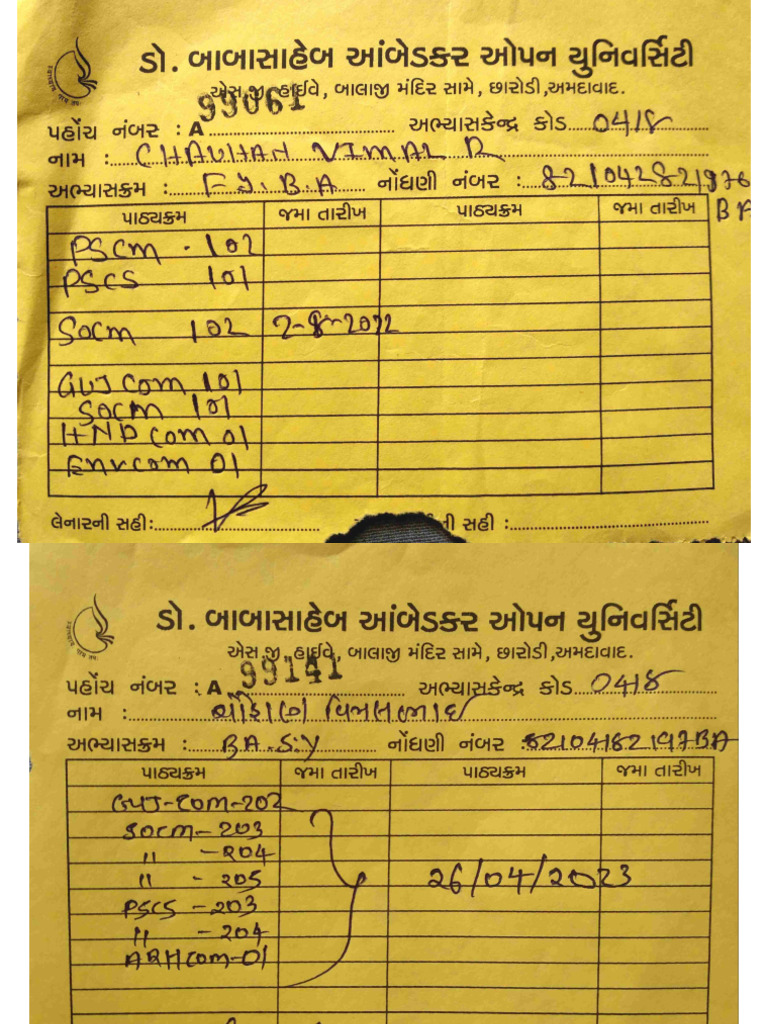 ડો. બાબાસાહેબ આંબેડકર ઓપન યુનિવર્સિટી
એસ.જી. હાઈવે, બાલાજી મંદિર સામે, છારોડી,અમદાવાદ.
પહોંચ નંબર : A 99061 અભ્યાસકેન્દ્ર કોડ 0418
નામ : CHAUHAN VIMAL R
અભ્યાસક્રમ : F.Y.B.A નોંધણી નંબર :
BA
પાઠ્યક્રમ જમા તારીખ પાઠ્યક્રમ જમા તારીખ
PSCM - 102
PSCS 101
SOCM 102 2-8-2022
GUJCOM 101
SOCM 101
HNDCOM 01
Envcom 01
લેનારની સહી: ની સહી :
ડો. બાબાસાહેબ આંબેડકર ઓપન યુનિવર્સિટી
એસ.જી. હાઈવે, બાલાજી મંદિર સામે, છારોડી,અમદાવાદ.
પહોંચ નંબર : A 99141 અભ્યાસકેન્દ્ર કોડ 0418
નામ : ચૌહાણ વિમલભાઈ
અભ્યાસક્રમ : BA.S.Y નોંધણી નંબર :
પાઠ્યક્રમ જમા તારીખ પાઠ્યક્રમ જમા તારીખ
GUJ-COM-202
SOCM-203
〃 -204
〃 - 205 26/04/2023
PSCS -203
〃 - 204
ARHCOM-01